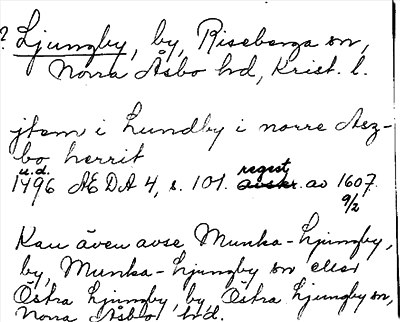 ? Ljungby, by, Riseberga sn,
Norra Åsbo hd, Krist. l.
jtem i Lundby i norre Aez-
bo herrit
u.d.
1496 ÆDA 4, s. 101. regest av 1607
9/2
Kan även avse Munka-Ljungby,
by, Munka-Ljungby sn eller
Östra Ljungby, by, Östra Ljungby sn,
Norra Åsbo hd.